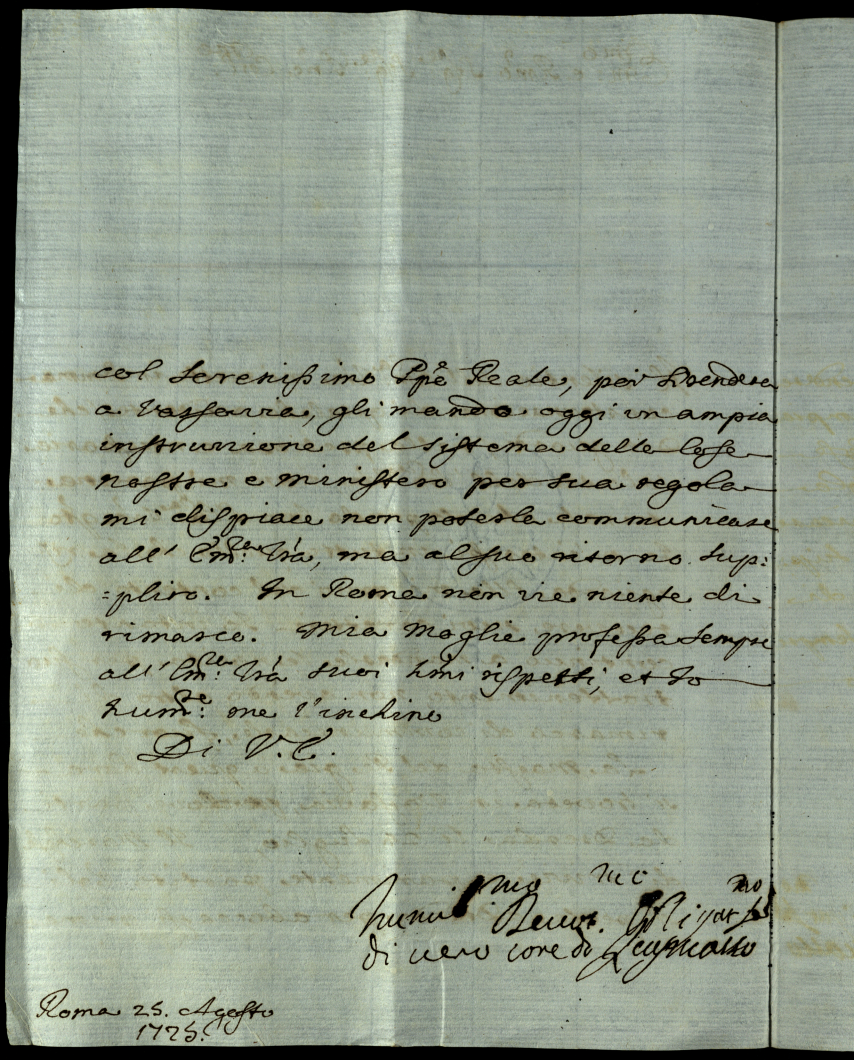 col Serenissimo Ppē Reale, per prendere
a Varsavia, gli mando oggi un ampia
instruzzione del sistema delle cose
nostre e ministero per sua regola
mi dispiace non poterla communicare
all' Em:za V̄ra, ma al suo ritorno sup:
:pliro. In Roma non vie niente di
rimarco. Mia Moglie professa sempre
all' Em:za V̄ra suoi hūmi rispetti, et Io
hum:te me l'inchino
Di V. E.
Humilmo Devotmo Obligatmo
di vero core
Roma 25. Agosto
1725.